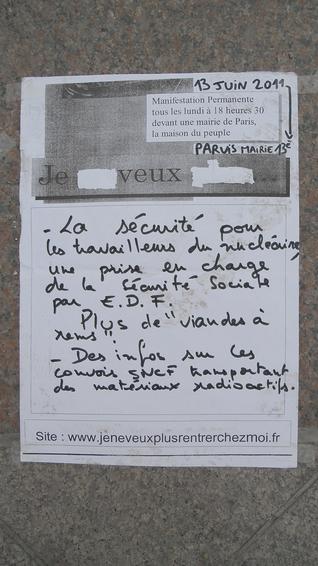 13 JUIN 2011
Manifestation Permanente
tous les lundi à 18 heures 30
devant une mairie de Paris,
la maison du peuple
PARVIS MAIRIE 13e
Je veux
- La sécurité pour
les travailleurs du nucléaire,
une prise en charge
de la Sécurité Sociale
par E.D.F.
Plus de "viandes à
rems"!
- Des infos sur les
convois SNCF transportant
des matériaux radioactifs.
Site : www.jeneveuxplusrentrerchezmoi.fr